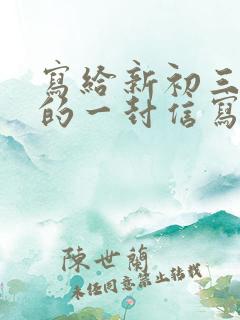 寫給新初三
的一封信寫
陳世蘭
未经同意禁止转载